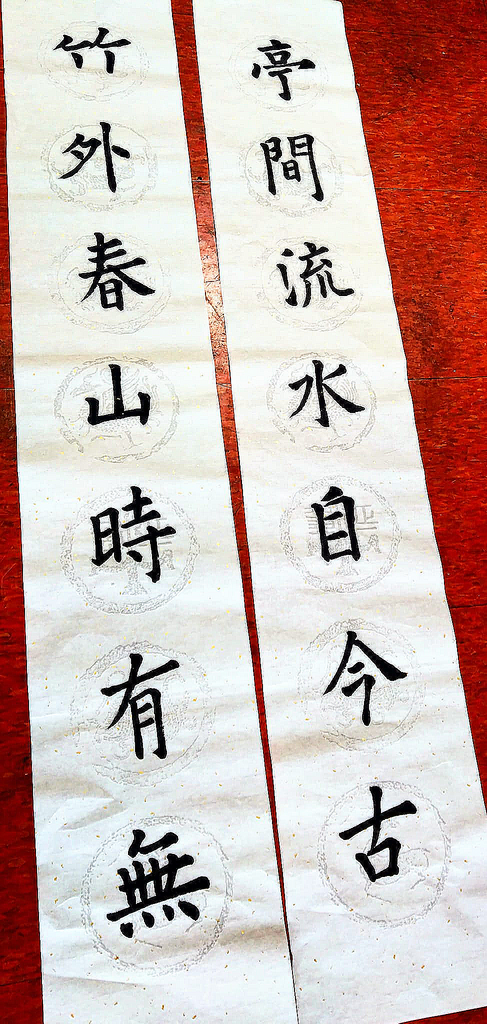 亭間流水自今古
竹外春山時有無